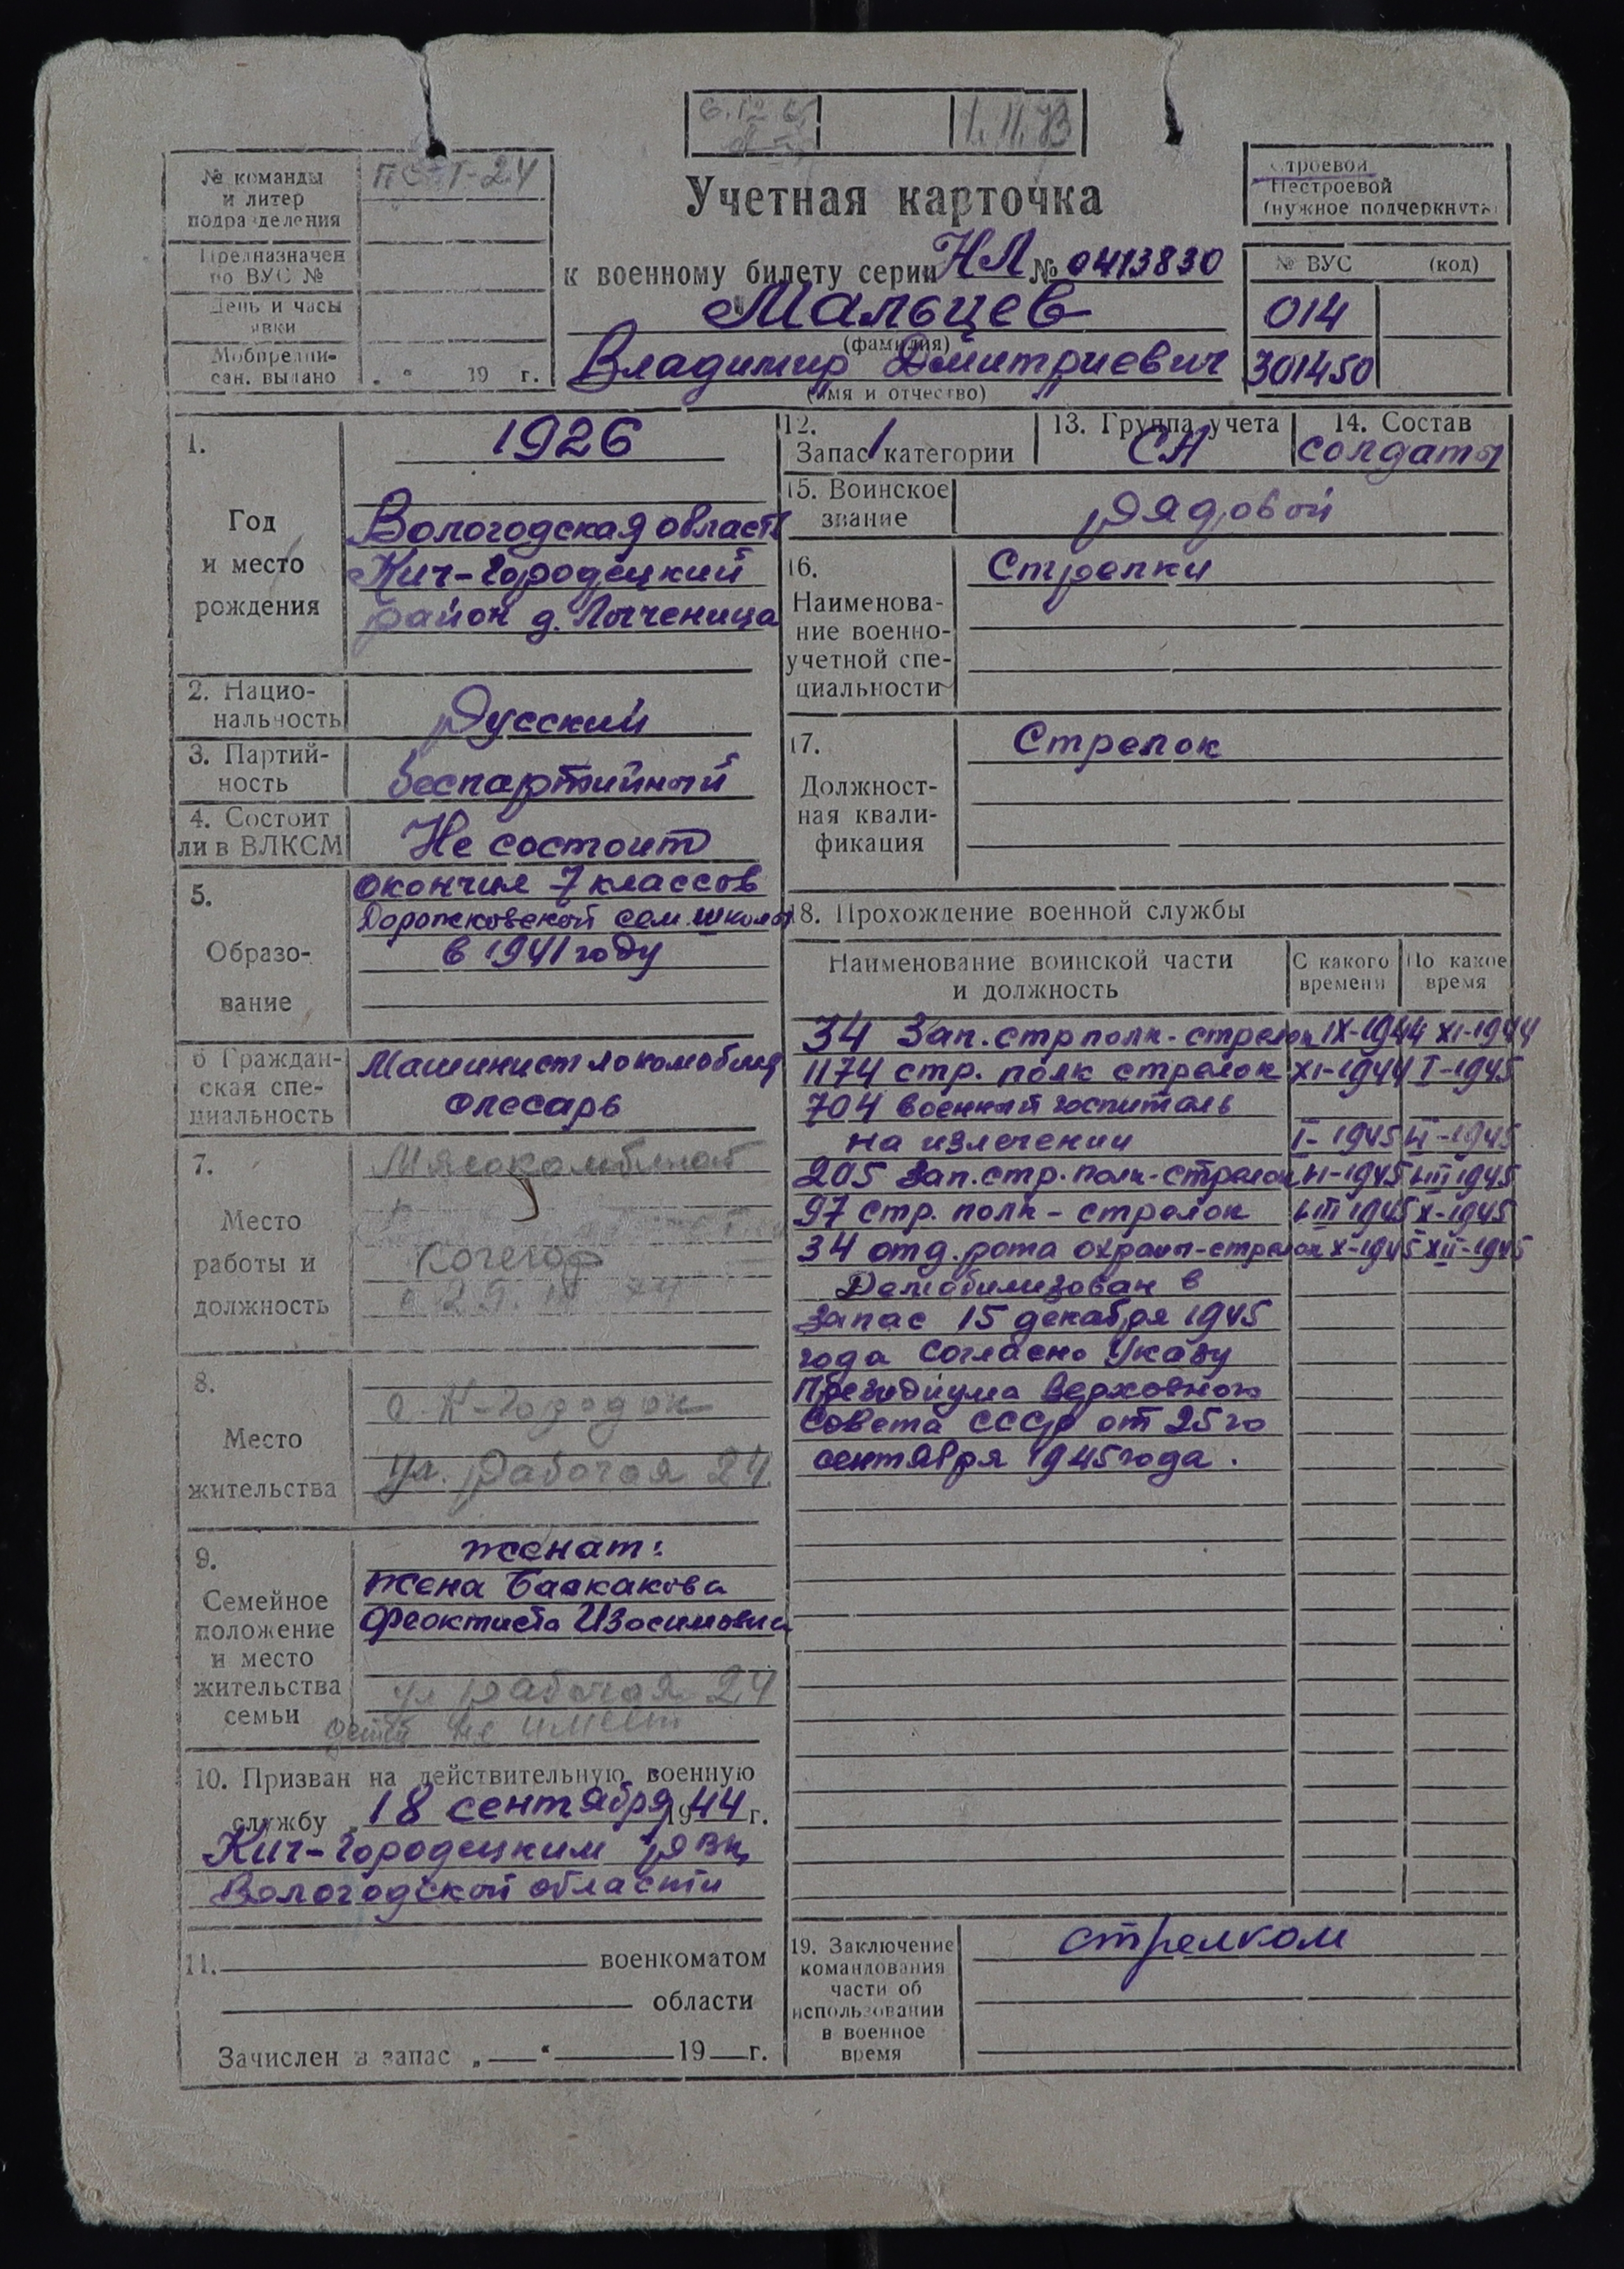 1.11.73
№ команды
и литер
подразделения
Предназначен
по ВУС №
День и часы
явки
Мобпредпи-
сан. выдано
„ “ 19 г.
Учетная карточка
к военному билету серии НЛ № 0413830
Мальцев
(фамилия)
Владимир Дмитриевич
(имя и отчество)
строевой
Нестроевой
(нужное подчеркнуть)
№ ВУС (код)
014
301450
1.
Год
и место
рождения
1926
Вологодская область
Кич-Городецкий
район д.
2. Нацио-
нальность
Русский
3. Партий-
ность
беспартийный
4. Состоит
ли в ВЛКСМ
Не состоит
5.
Образо-
вание
окончил 7 классов
Дорожковской сем. школы
в 1941 году
6 Граждан-
ская спе-
циальность
Машинист локомобиля
слесарь
7.
Место
работы и
должность
Мясокомбинат
Кочегар
8.
Место
жительства
с. К-Городок
ул. Рабочая 24
9.
Семейное
положение
и место
жительства
семьи
женат:
жена Баскакова
Феоктиста Изосимовна
ул Рабочая 24
детей не имеет
10. Призван на действительную военную
службу 18 сентября 1944 г.
Кич-Городецким РВК
Вологодской области
11. военкоматом
области
Зачислен в запас „ “ 19 г.
12.
Запас 1 категории
13. Группа учета
СА
14. Состав
солдаты
15. Воинское
звание
рядовой
16.
Наименова-
ние военно-
учетной спе-
циальности
Стрелки
17.
Должност-
ная квали-
фикация
Стрелок
18. Прохождение военной службы
Наименование воинской части
и должность
С какого
времени
По какое
время
34 Зап. стр полк - стрелок IX-1944 XI-1944
1174 стр. полк стрелок XI-1944 I-1945
704 военный госпиталь
на излечении I-1945 II-1945
205 Зап. стр. полк - стрелок II-1945 III 1945
97 стр. полк - стрелок III 1945 X-1945
34 отд. рота охраны - стрелок X-1945 XII-1945
Демобилизован в
запас 15 декабря 1945
года согласно Указу
Президиума Верховного
Совета СССР от 25го
сентября 1945 года.
19. Заключение
командования
части об
использовании
в военное
время
стрелком